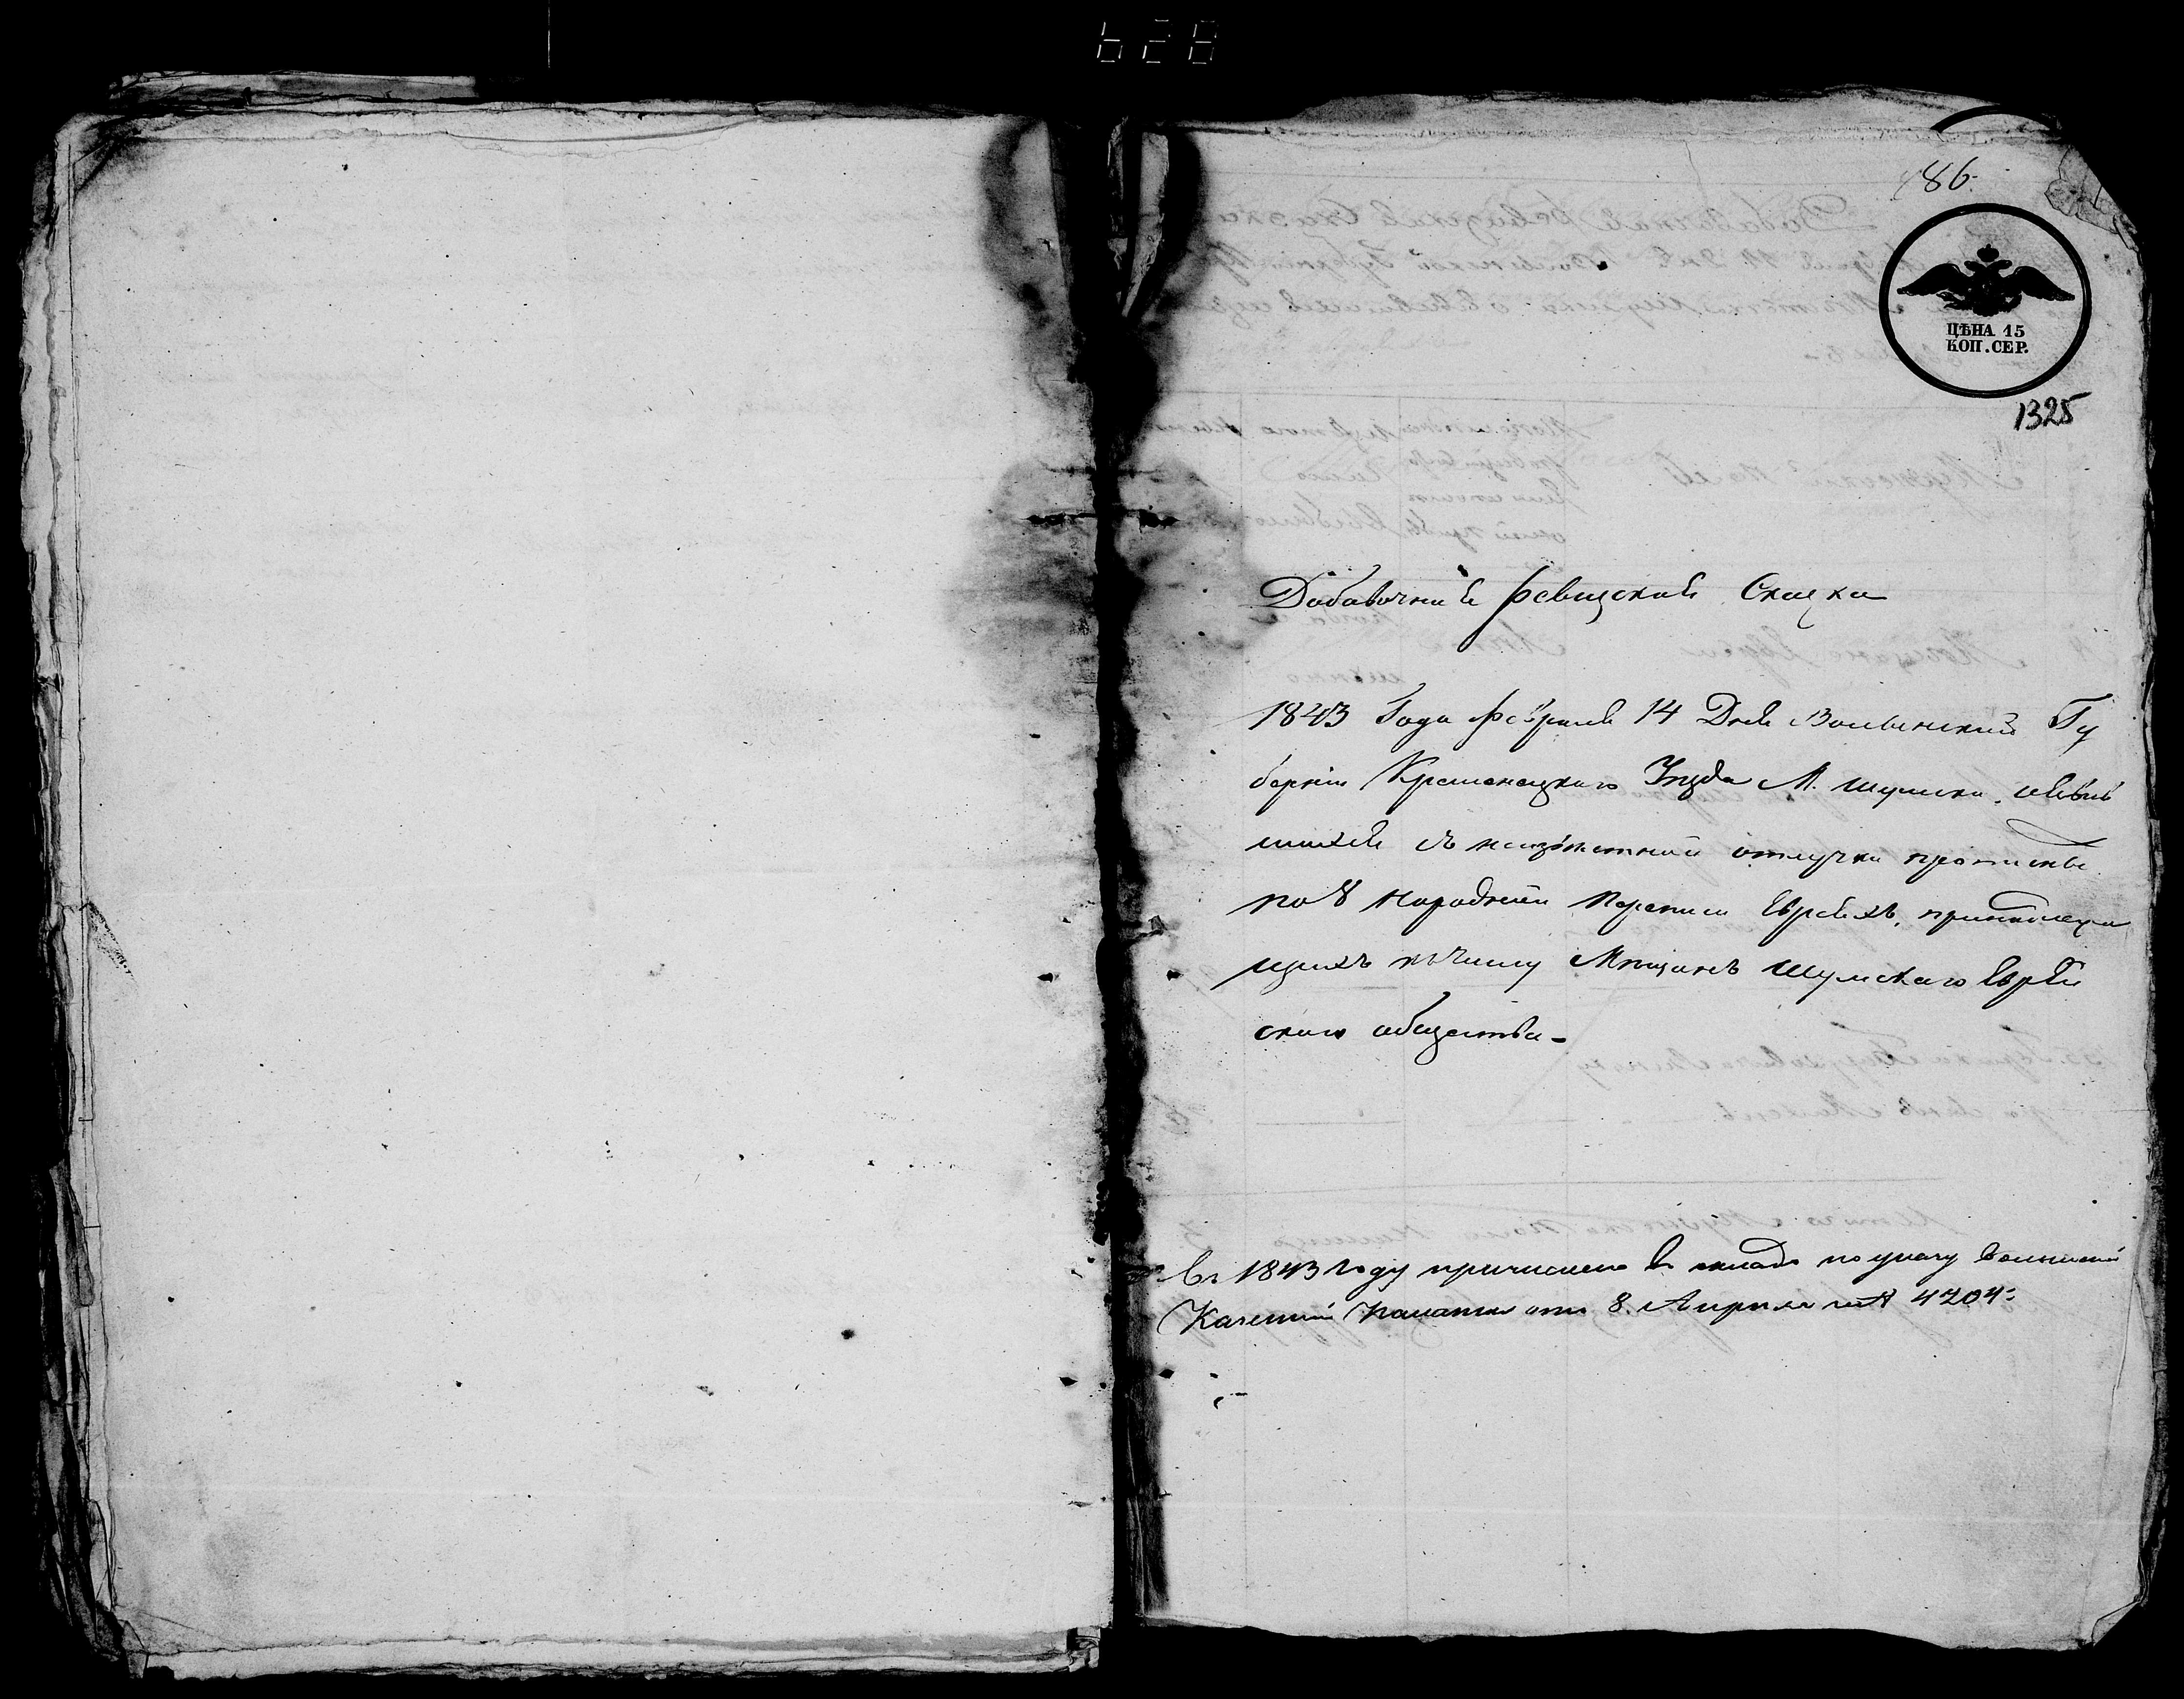 628
186
ЦѢНА 15
КОП. СЕР.
1325
Добавочная ревизская Сказка
1843 Года февраля 14 Дня Волынский Гу
берніи Кременецкаго Уѣзда М. Шумска. объ явив
шихся съ неизвѣстной отлучки прописны
по 8 Народней Переписи Евреяхъ, принадлежа
щихъ къ числу Мѣщанъ Шумскаго Еврей
скаго общества -
Въ 1843 году причислено въ окладъ по указу Волынской
Казенной Палаты отъ 8. Апреля за № 4204: